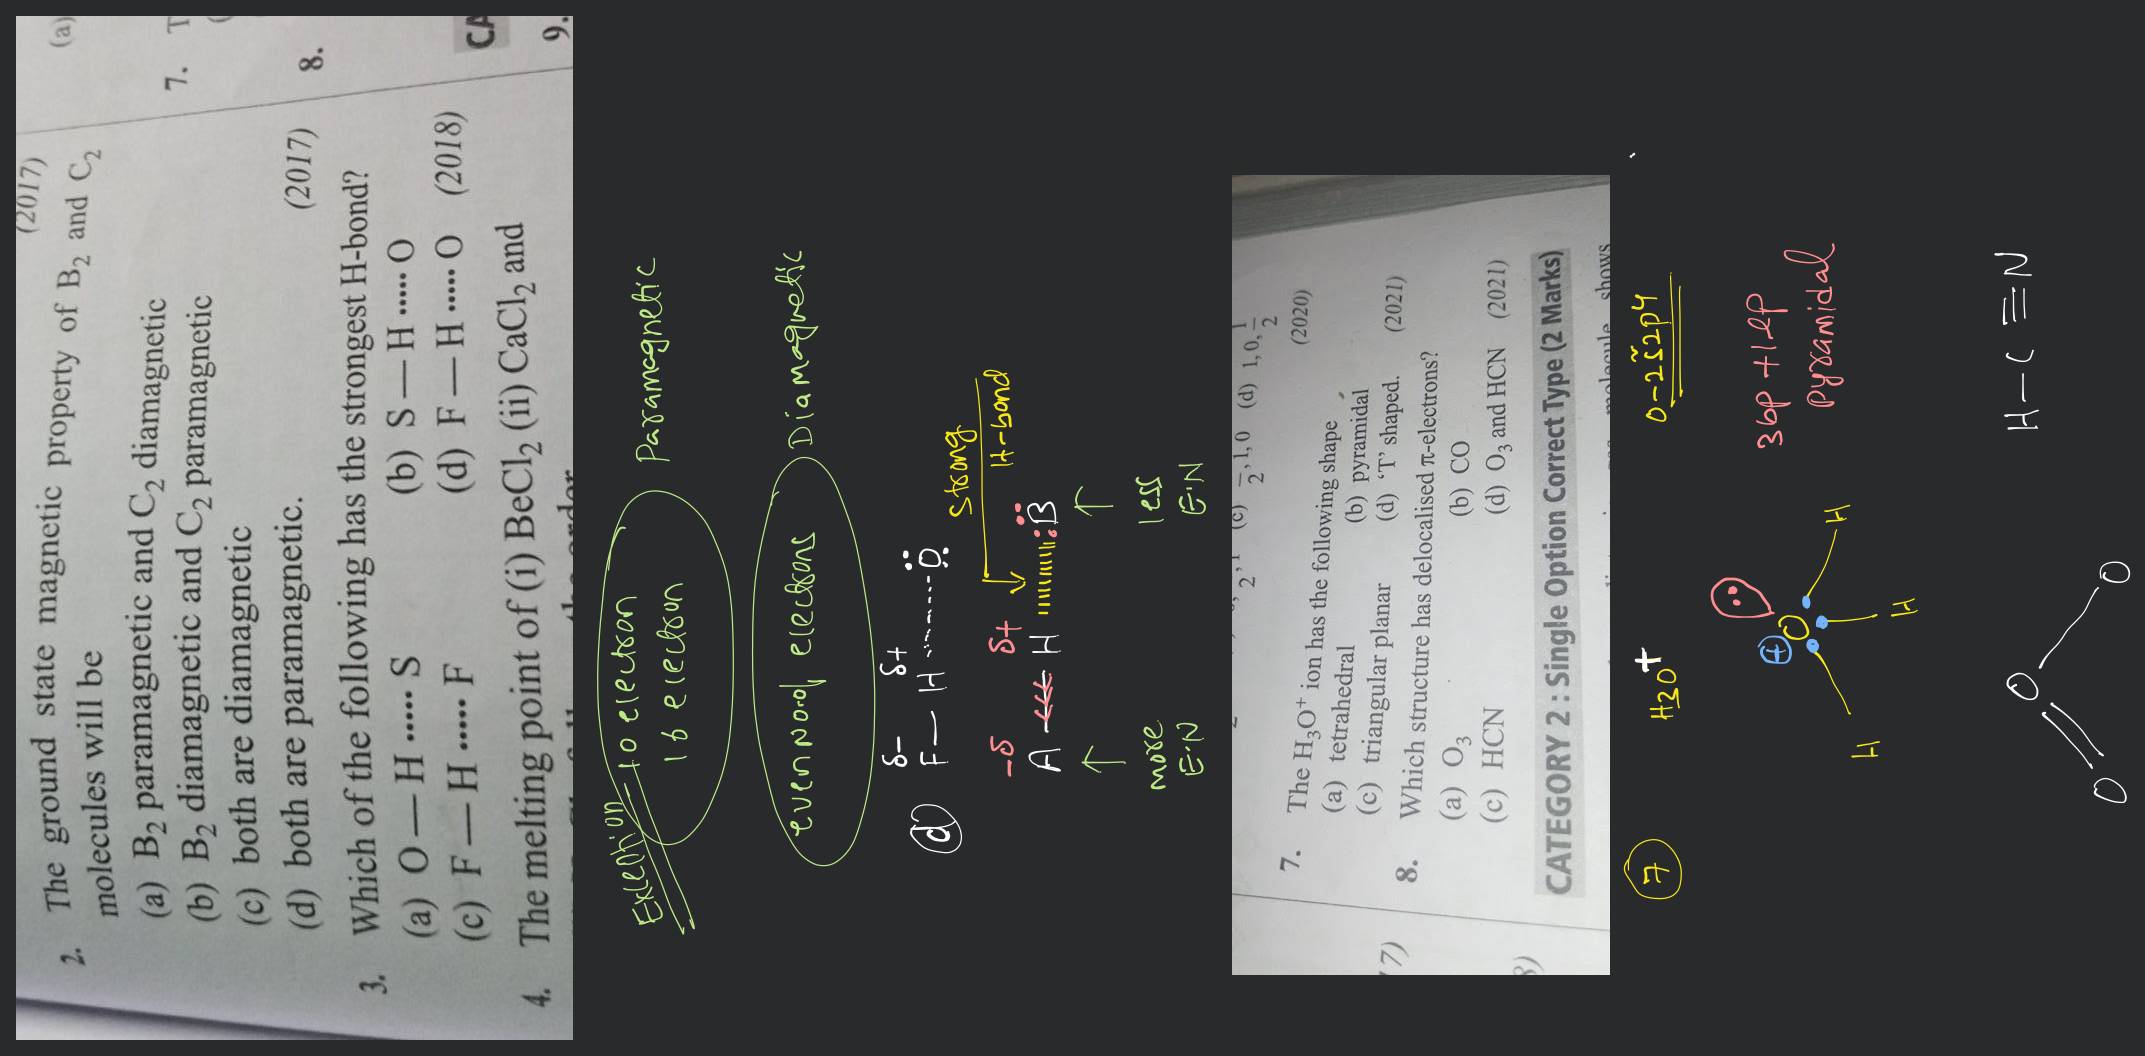 (2017)
2. The ground state magnetic property of B₂ and C₂
molecules will be
(a) B₂ paramagnetic and C₂ diamagnetic
(b) B₂ diamagnetic and C₂ paramagnetic
(c) both are diamagnetic
(d) both are paramagnetic. (2017)
3. Which of the following has the strongest H-bond?
(a) O—H ····· S (b) S—H ····· O
(c) F—H ····· F (d) F—H ····· O (2018)
4. The melting point of (i) BeCl₂ (ii) CaCl₂ and
(a)
7. T
8.
CA
9.
10 electron
16 electron
Paramagnetic
even no. of electrons
Diamagnetic
(d)
δ- δ+
F—H-------O
Strong
H-bond
-δ δ+
A H B
↑ ↑
more less
E·N E·N
(d) 1, 0, 1/2
(2020)
7. The H₃O⁺ ion has the following shape
(a) tetrahedral (b) pyramidal
(c) triangular planar (d) ‘T’ shaped. (2021)
8. Which structure has delocalised π-electrons?
(a) O₃ (b) CO
(c) HCN (d) O₃ and HCN (2021)
CATEGORY 2 : Single Option Correct Type (2 Marks)
molecule shows
7)
8)
7 H₃O⁺ O-2s²2p4
+ O
H H H
3bp + 1lp
pyramidal
O O O
H—C≡N